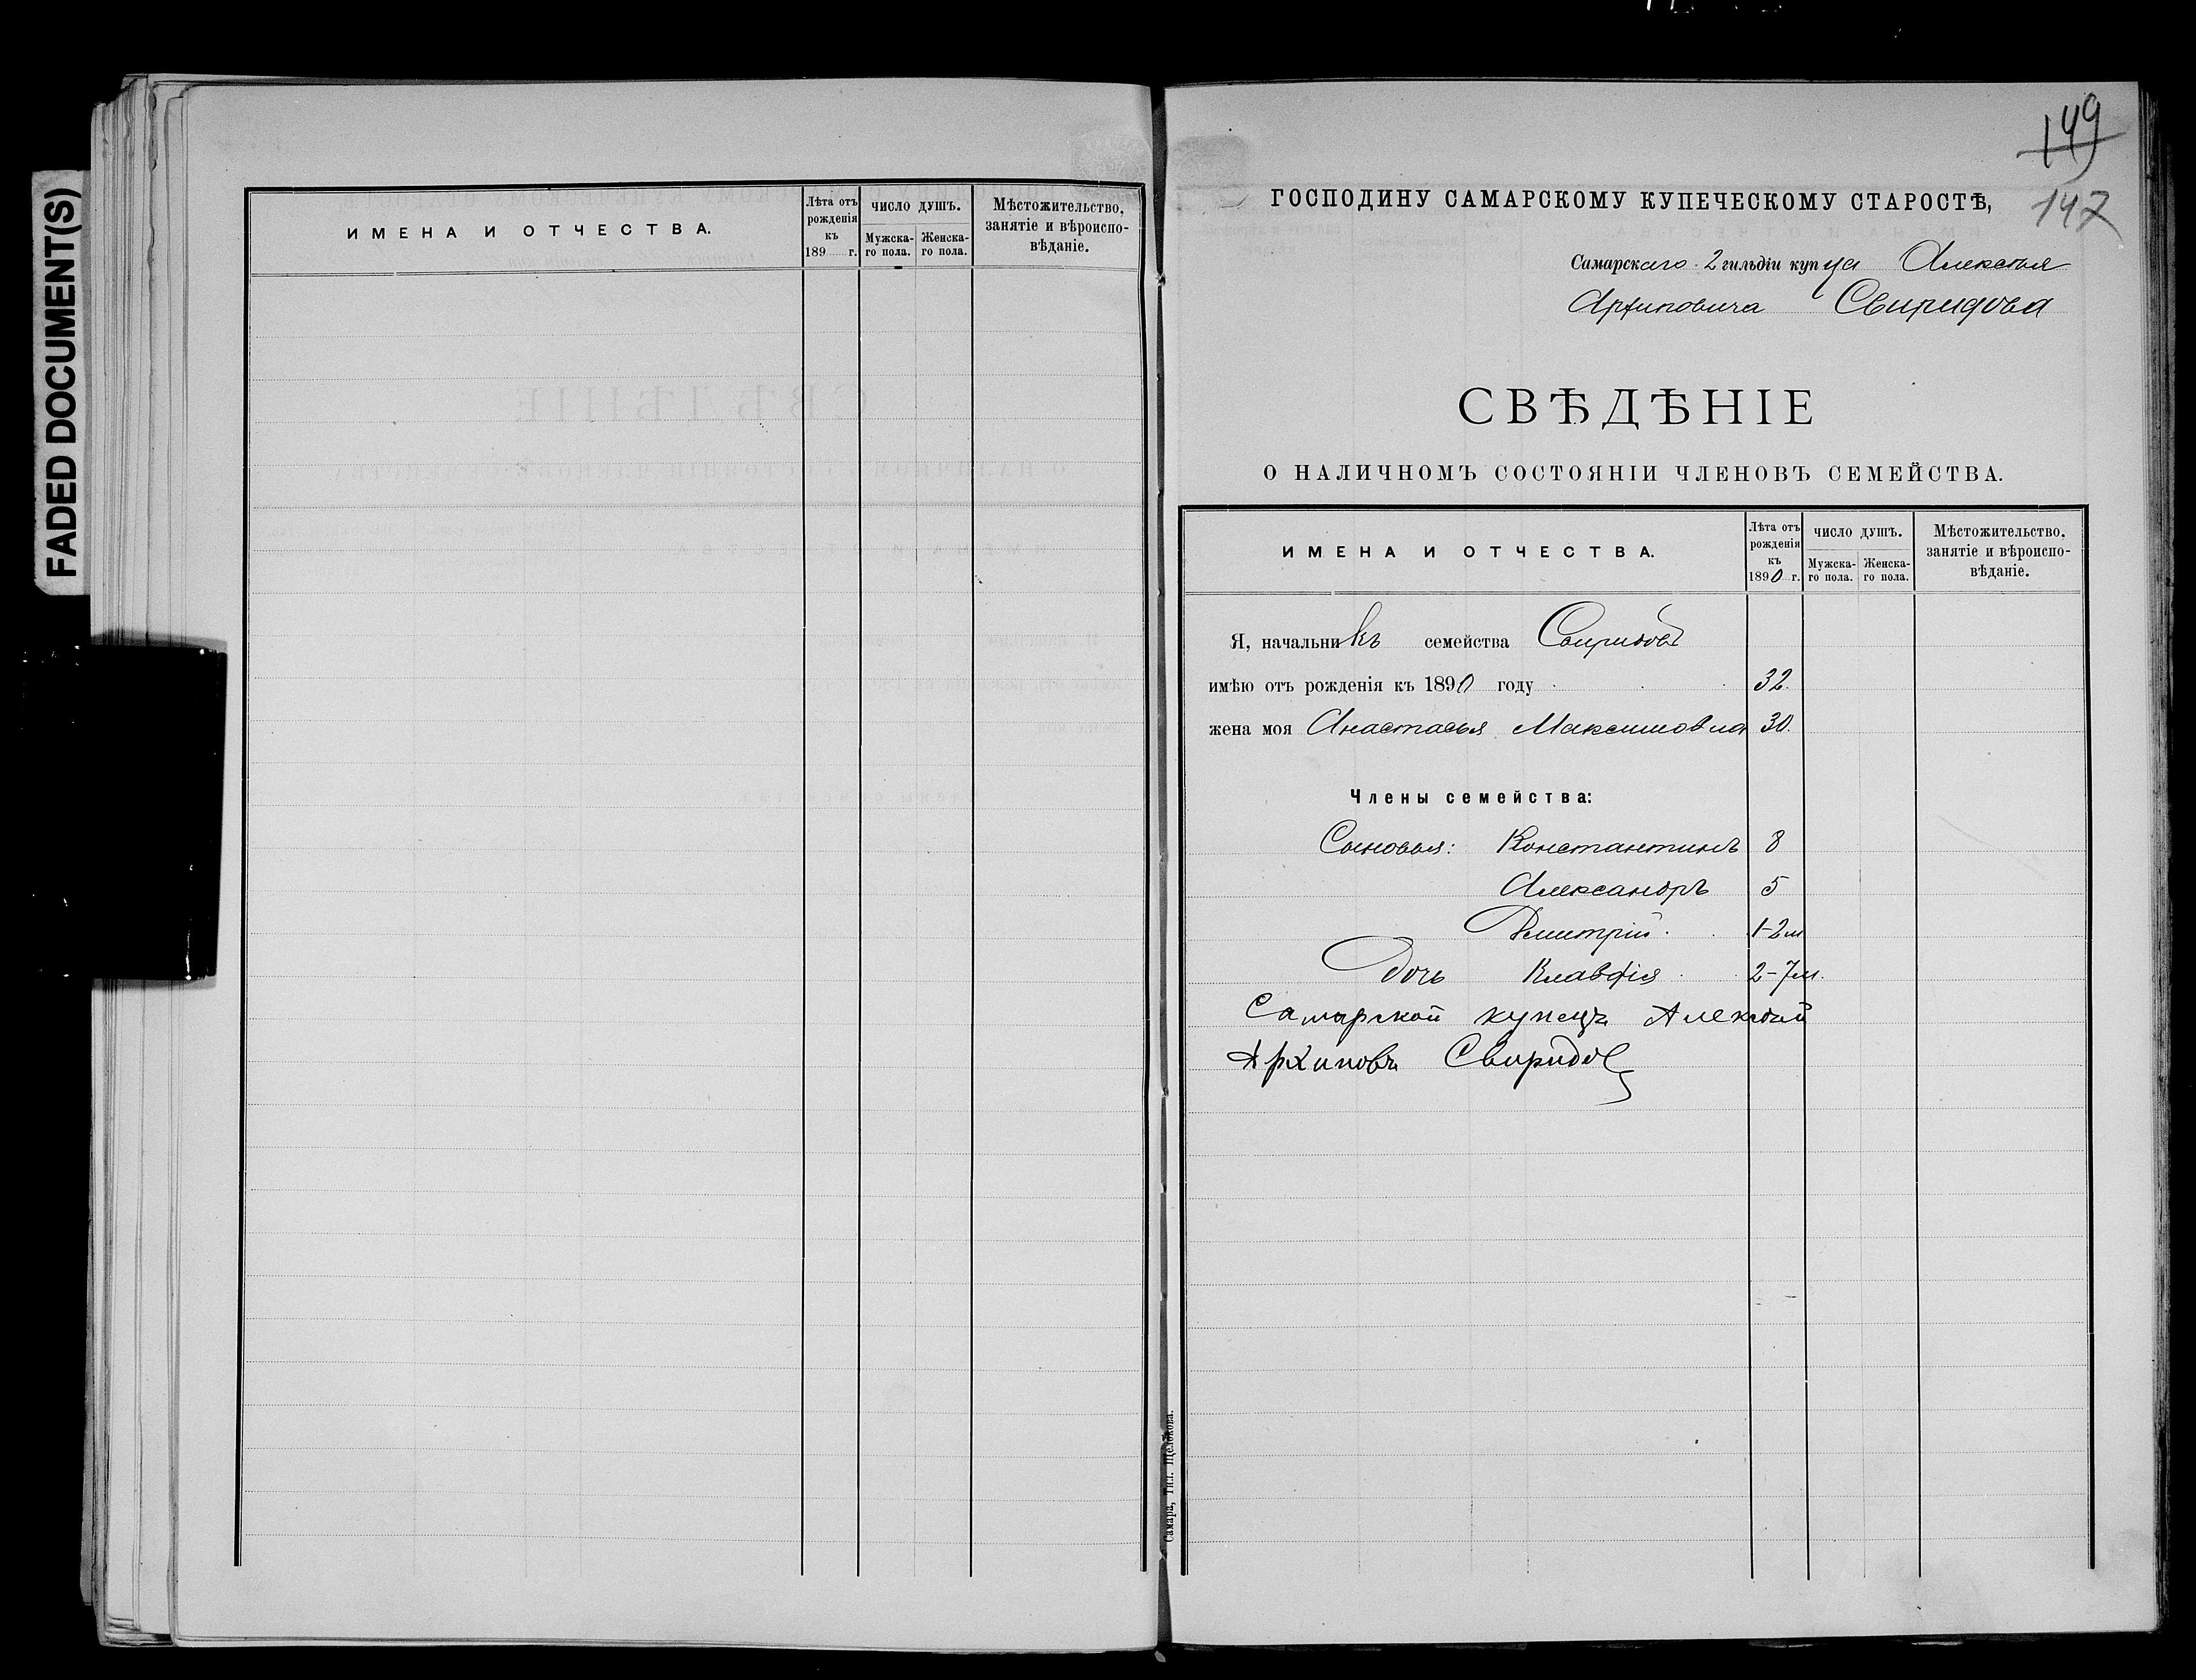 FADED DOCUMENT(S)
ИМЕНА И ОТЧЕСТВА.
Лѣта отъ рожденія къ 189 г.
ЧИСЛО ДУШЪ.
Мужска-го пола.
Женска-го пола.
Мѣстожительство, занятіе и вѣроиспо-вѣданіе.
149
147
ГОСПОДИНУ САМАРСКОМУ КУПЕЧЕСКОМУ СТАРОСТѢ,
Самарскаго 2 гильдіи купца Алексѣя
Архиповича Свиридова
СВѢДѢНІЕ
О НАЛИЧНОМЪ СОСТОЯНІИ ЧЛЕНОВЪ СЕМЕЙСТВА.
ИМЕНА И ОТЧЕСТВА.
Лѣта отъ рожденія къ 1890 г.
ЧИСЛО ДУШЪ.
Мужска-го пола.
Женска-го пола.
Мѣстожительство, занятіе и вѣроиспо-вѣданіе.
Я, начальникъ семейства Свиридовъ
имѣю отъ рожденія къ 1890 году 32.
жена моя Анастасья Максимовна 30.
Члены семейства:
Сыновья: Константинъ 8
Александръ 5
Дмитрій 1-2 м
Дочь Клавдія 2-7 м.
Самарской купецъ Алексѣй
Архиповъ Свиридов
Самара, Тип. Щелокова.